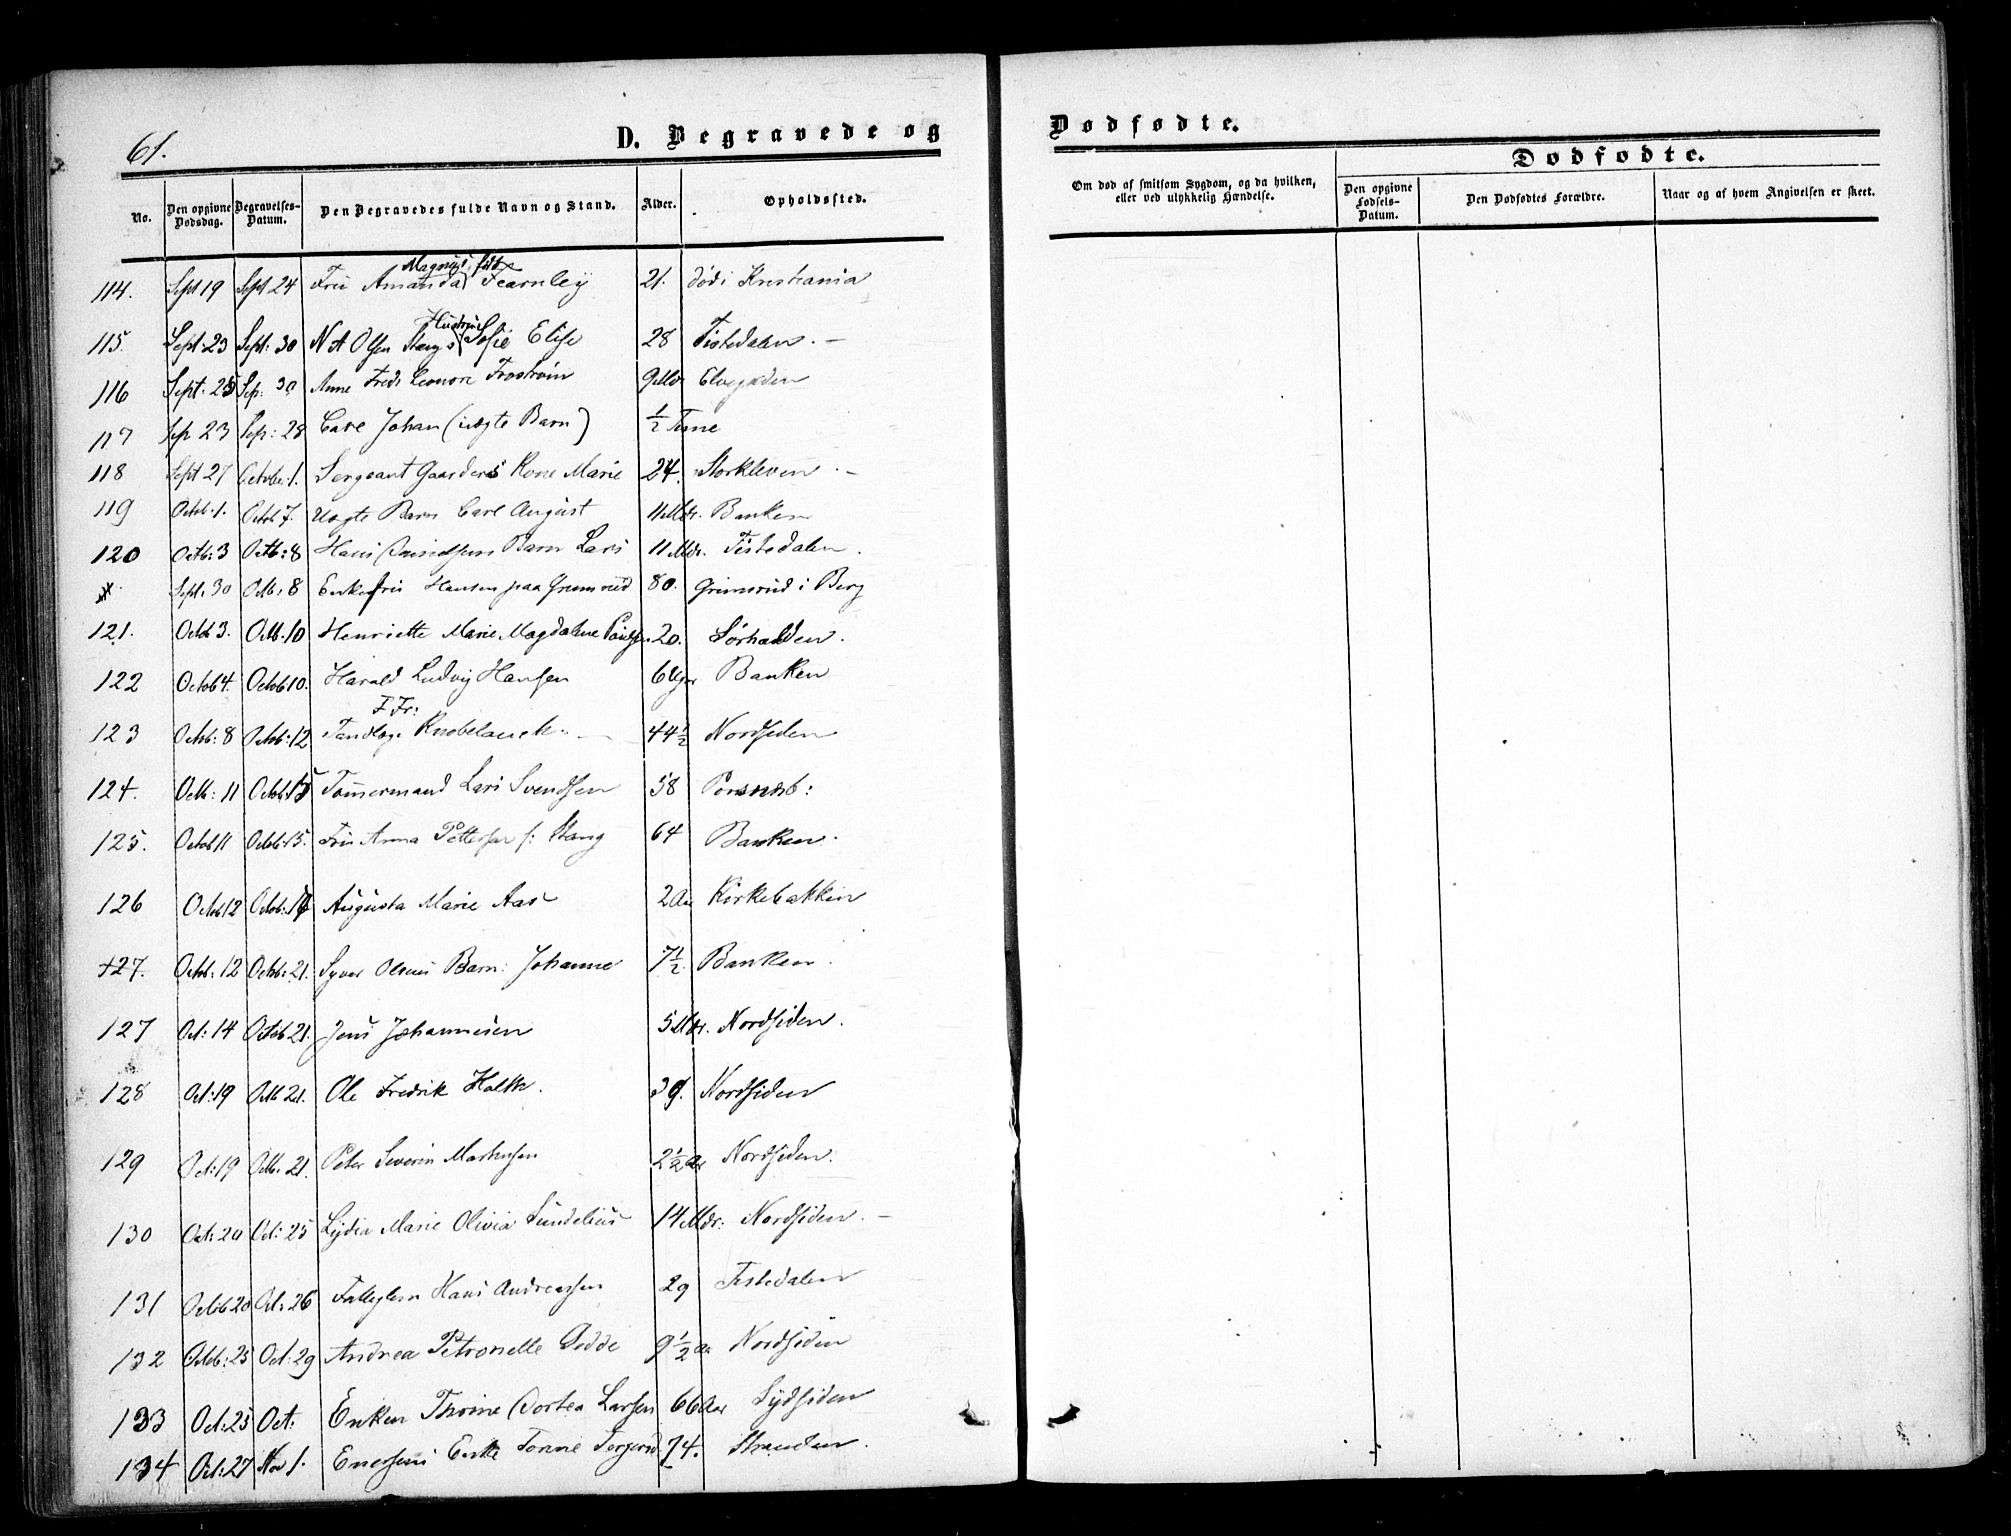 61.
D. Begravede og
Dødfødte.
Dødfødte.
No.
Den opgivne Dødsdag.
Begravelses-Datum.
Den Begravedes fulde Navn og Stand.
Alder.
Opholdssted.
Om død af smitsom Sygdom, og da hvilken, eller ved ulykkelig Hændelse.
Den opgivne Fødsels-Datum.
Den Dødfødtes Forældre.
Naar og af hvem Angivelsen er skeet.
Magnus, født
114. Sept 19 Sept 24 Fru Amanda Fearnley 21. død i Kristiania
Hustru
115. Sept: 23 Sept: 30 N A Olsen Stangs Sofie Elise 28 Tistedalen. -
116 Sept: 25 Sp: 30 Anne Fredr Leonore Frostrøm 9 Mdr Elvegaden
117 Sep 23 Sep: 28 Carl Johan (uægte Barn) 1/2 Time
118 Sept 27 October 1. Sergeant Gaarders Kone Marie 24. Storkleven. -
119 Octob. 1. Octob 7. Uægte Barn Carl August 11 Mdr. Banken
120 Octb: 3 Octb: 8 Hans Barn Lars 11 Mdr. Tistedalen.
Sept. 30 Octb. 8 Enkefru Hansen paa Grimsrud 80. Grimsrud i Berg
121. Octob 3. Octb. 10 Henriette Marie Magdalene 20. Sørhalden.
122 Octob 4. Octob 10. Harald Ludvig Hansen 6 Uger Banken
F Fr:
123 Octob: 8 Octob: 12 Tandlæge Knobelauch. 44 1/2 Nordsiden
124. Octb: 11 Octob 15 Tømmermand Lars Svendsen 58
125. Octob 11 Octob: 15. Fru Anna Pettersen f: Stang 64 Banken.
126 Octob 12 Octob: Augusta Marie Aas 2 Aar Kirkebakken
127. Octob: 12 Octob: 21. Syver Olsens Barn: Johanne 7 1/2 Banken.
127 Oct: 14 Octob 21. Jens Johannesen 5 Mdr. Nordsiden.
128 Oct: 19 Octb 21. Ole Fredrik Holth. 39. Nordsiden
129 Oct: 19 Octb. 21. Peter Severin Marthesen 2 1/2 Aar Nordsiden.
130 Oct: 20 Oct: 25 Lydia Marie Olivia Sundelius 14 Mdr: Nordsiden. -
131 Octob 20 Oct: 26 Hans Andreassen 29 Tistedalen
132 Octob: 25 Oct: 29 Andrea Petronelle Dodde 9 1/2 Aar Nordsiden
133 Oct: 25 Oct: Enken Thrine Dortea Larsen 66 Aar Sydsiden
134 Oct: 27 Nov 1. Enke Torine 74. Stranden.